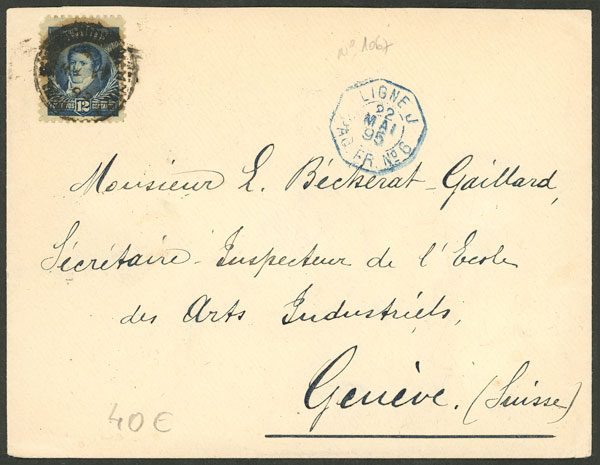 CENTAVOS 12 CENTAVOS
Nº 1067
LIGNE J
22
MAI
95
PAQ. FR. Nº 6
Monsieur L. Béckerat-Gaillard,
Sécrétaire-Inspecteur de l'Ecole
des Arts Industriels,
Genève. (Suisse)
40 €